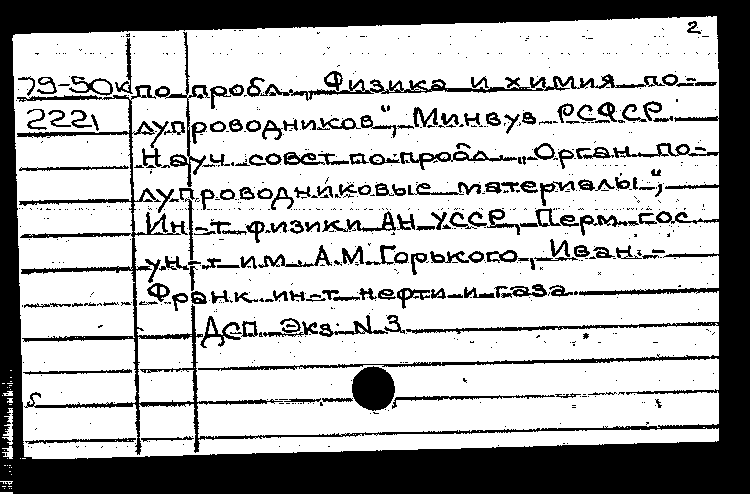 2
79-50к по пробл. „Физика и химия по-
2221 лупроводников", Минвуз РСФСР.
Науч. совет по пробл. „Орган. по-
лупроводниковые материалы",
Ин-т физики АН УССР, Перм. гос.
ун-т им. А.М. Горького, Иван.-
Франк. ин-т нефти и газа
ДСП. Экз. N 3